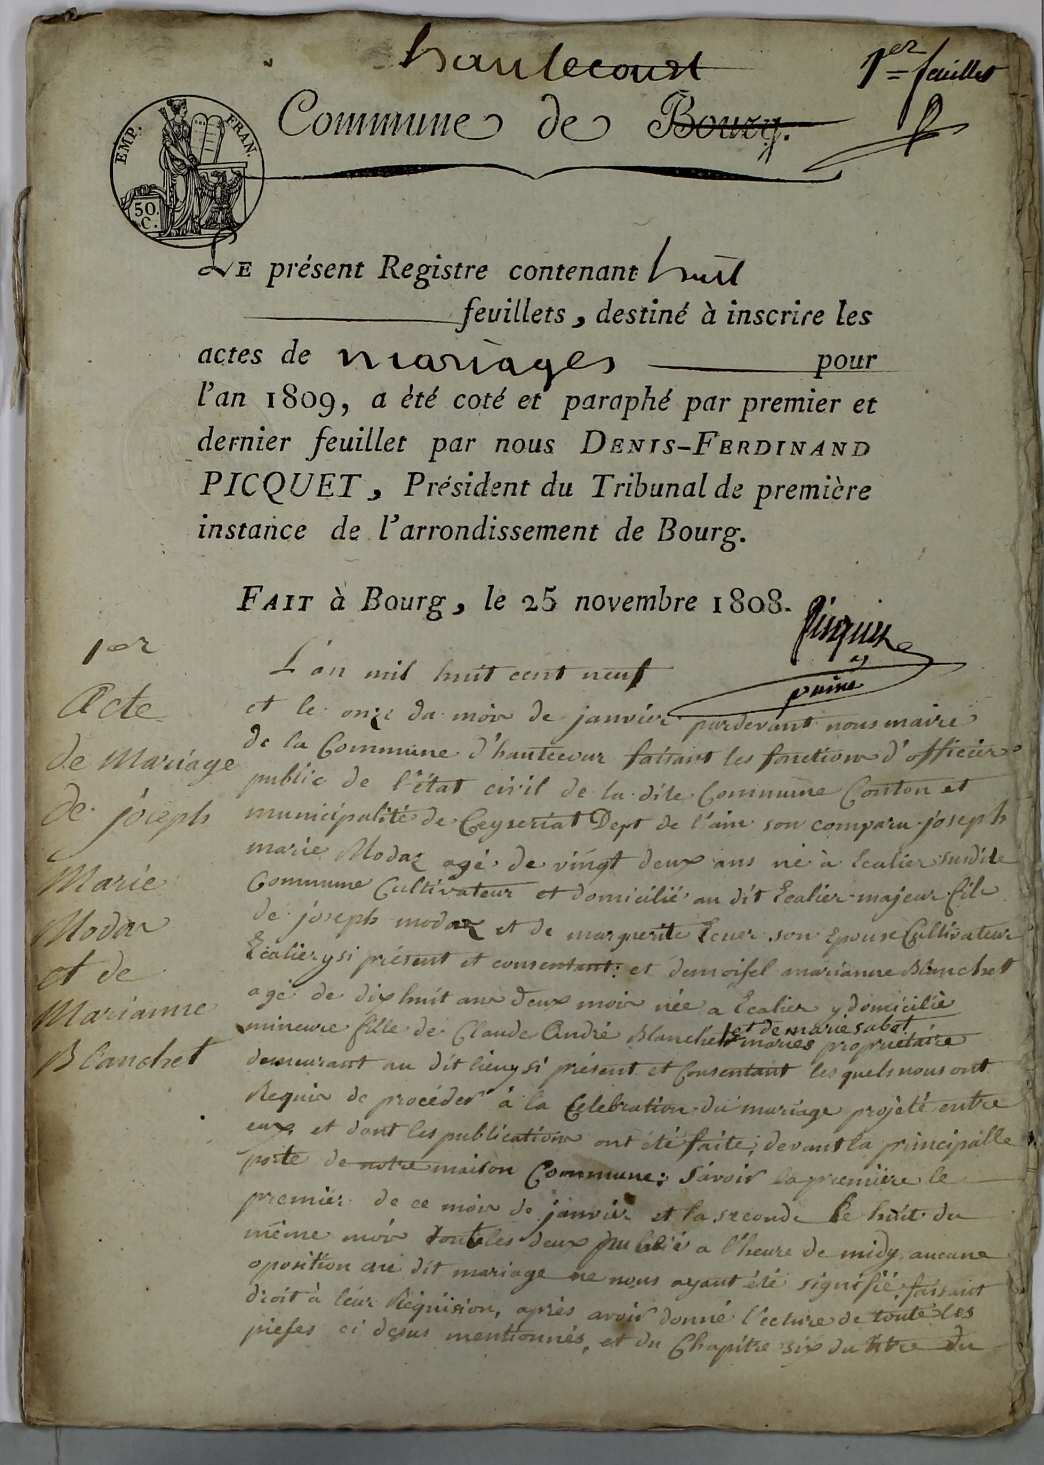 hautecourt
1er feuillet
Commune de Bouzy.
EMP. FRAN.
50. C.
LE présent Registre contenant huit
feuillets, destiné à inscrire les
actes de mariages pour
l'an 1809, a été coté et paraphé par premier et
dernier feuillet par nous DENIS-FERDINAND
PICQUET, Président du Tribunal de première
instance de l'arrondissement de Bourg.
FAIT à Bourg, le 25 novembre 1808.
Picquet
1er
Acte
de Mariage
de joseph
Marie
Modaz
et de
Marianne
Blanchet
L'an mil huit cent neuf
et le onze du mois de janvier pardevant nous maire
de la Commune d'hautecour faisant les fonction d'officier
public de l'état civil de la dite Commune Conton et
municipalité de Ceyseriat Dept de l'ain son comparu joseph
marie Modaz agé de vingt deux ans né à Ecalier susdite
Commune Cultivateur et domicilié au dit Ecalier majeur fils
de joseph modaz et de marguerite son Epouse Cultivateur
Ecalier ysi présent et consentant: et demoisel marianne Blanchet
agé de dix huit ans deux mois née a Ecalier y domicilié
mineure fille de Claude André Blanchet et de marie sabet mariés propriétaire
demeurant au dit lieu ysi présent et Consentant les quels nous ont
Requis de procéder à la Célébration du mariage projeté entre
eux et dont les publication ont été faite, devant la principalle
porte de notre maison Commune: savoir la première le
premier de ce mois de janvier et la seconde le huit du
même mois toutes les deux publié a l'heure de midy, aucune
oposition au dit mariage ne nous ayant été signifié, faisant
droit à leur Réquision, après avoir donné lecture de toute les
pieses ci desus mentionnés, et du Chapitre six du titre du